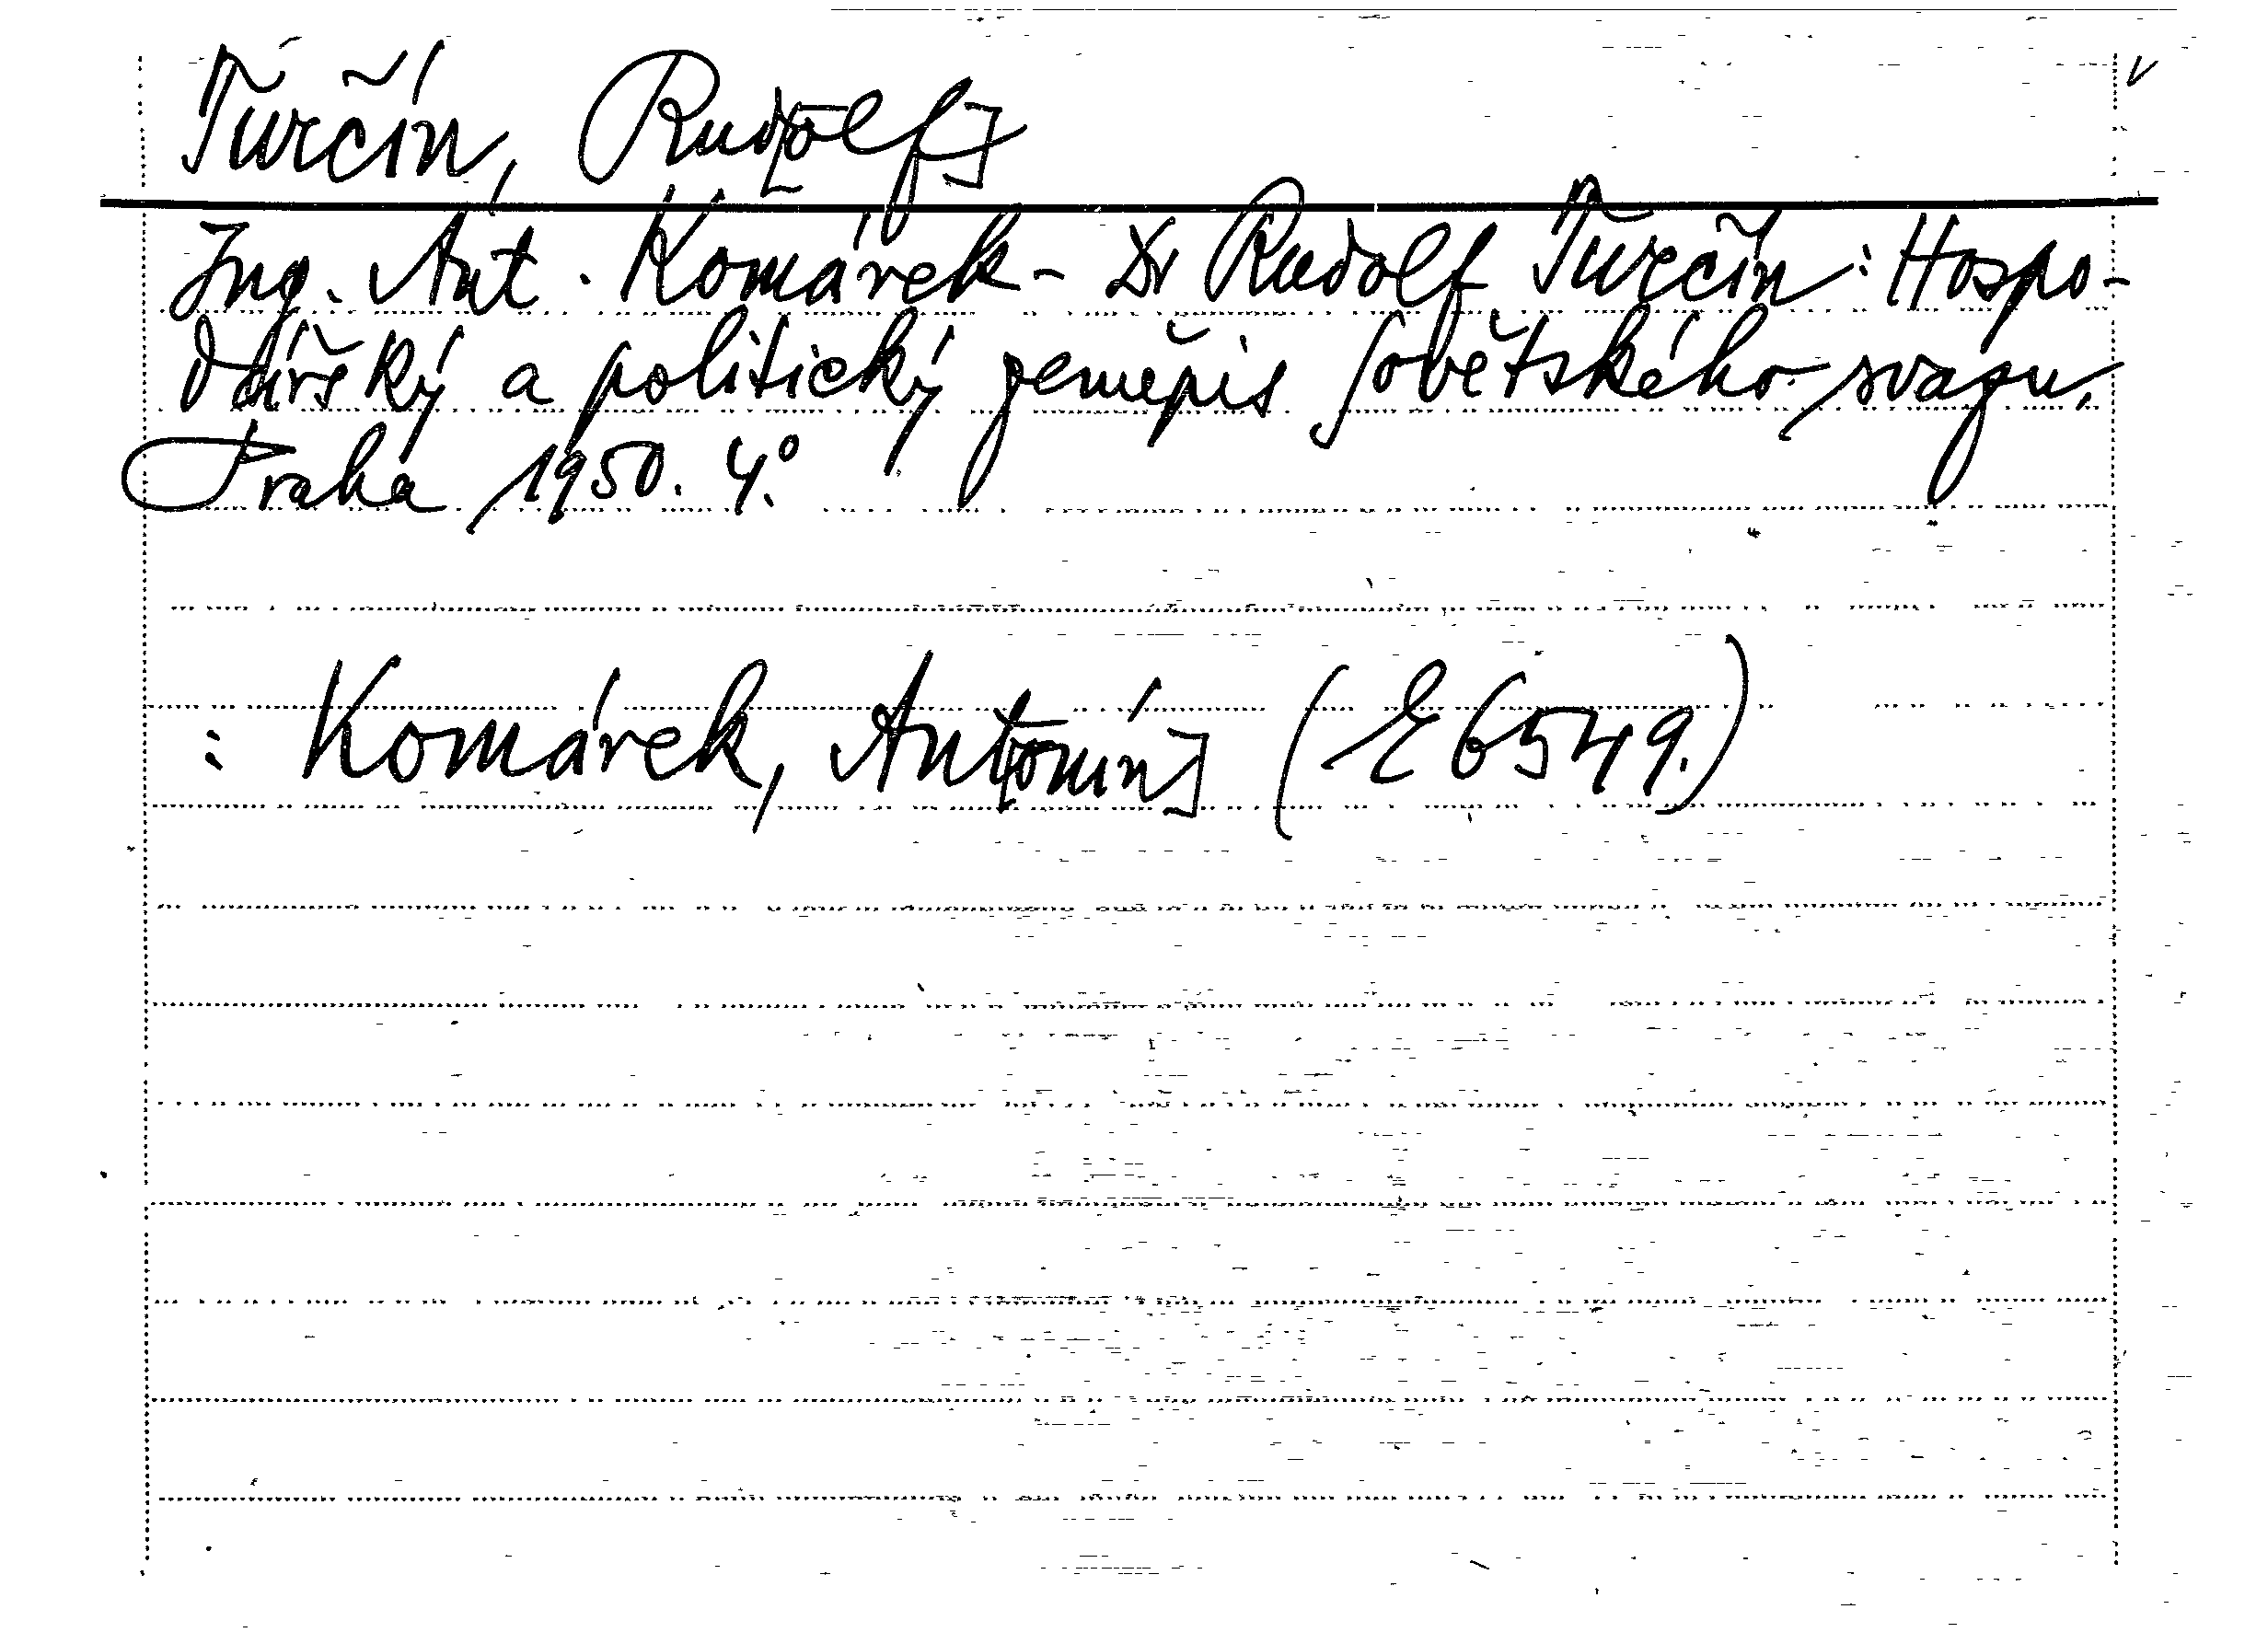 Turčín, Rud[olf]
Ing. Ant. Komárek - Dr Rudolf Turčín: Hospo-
dářský a politický zeměpis Sovětského svazu.
Praha 1950. 4.°
: Komárek, Ant[onín] (E 6549.)